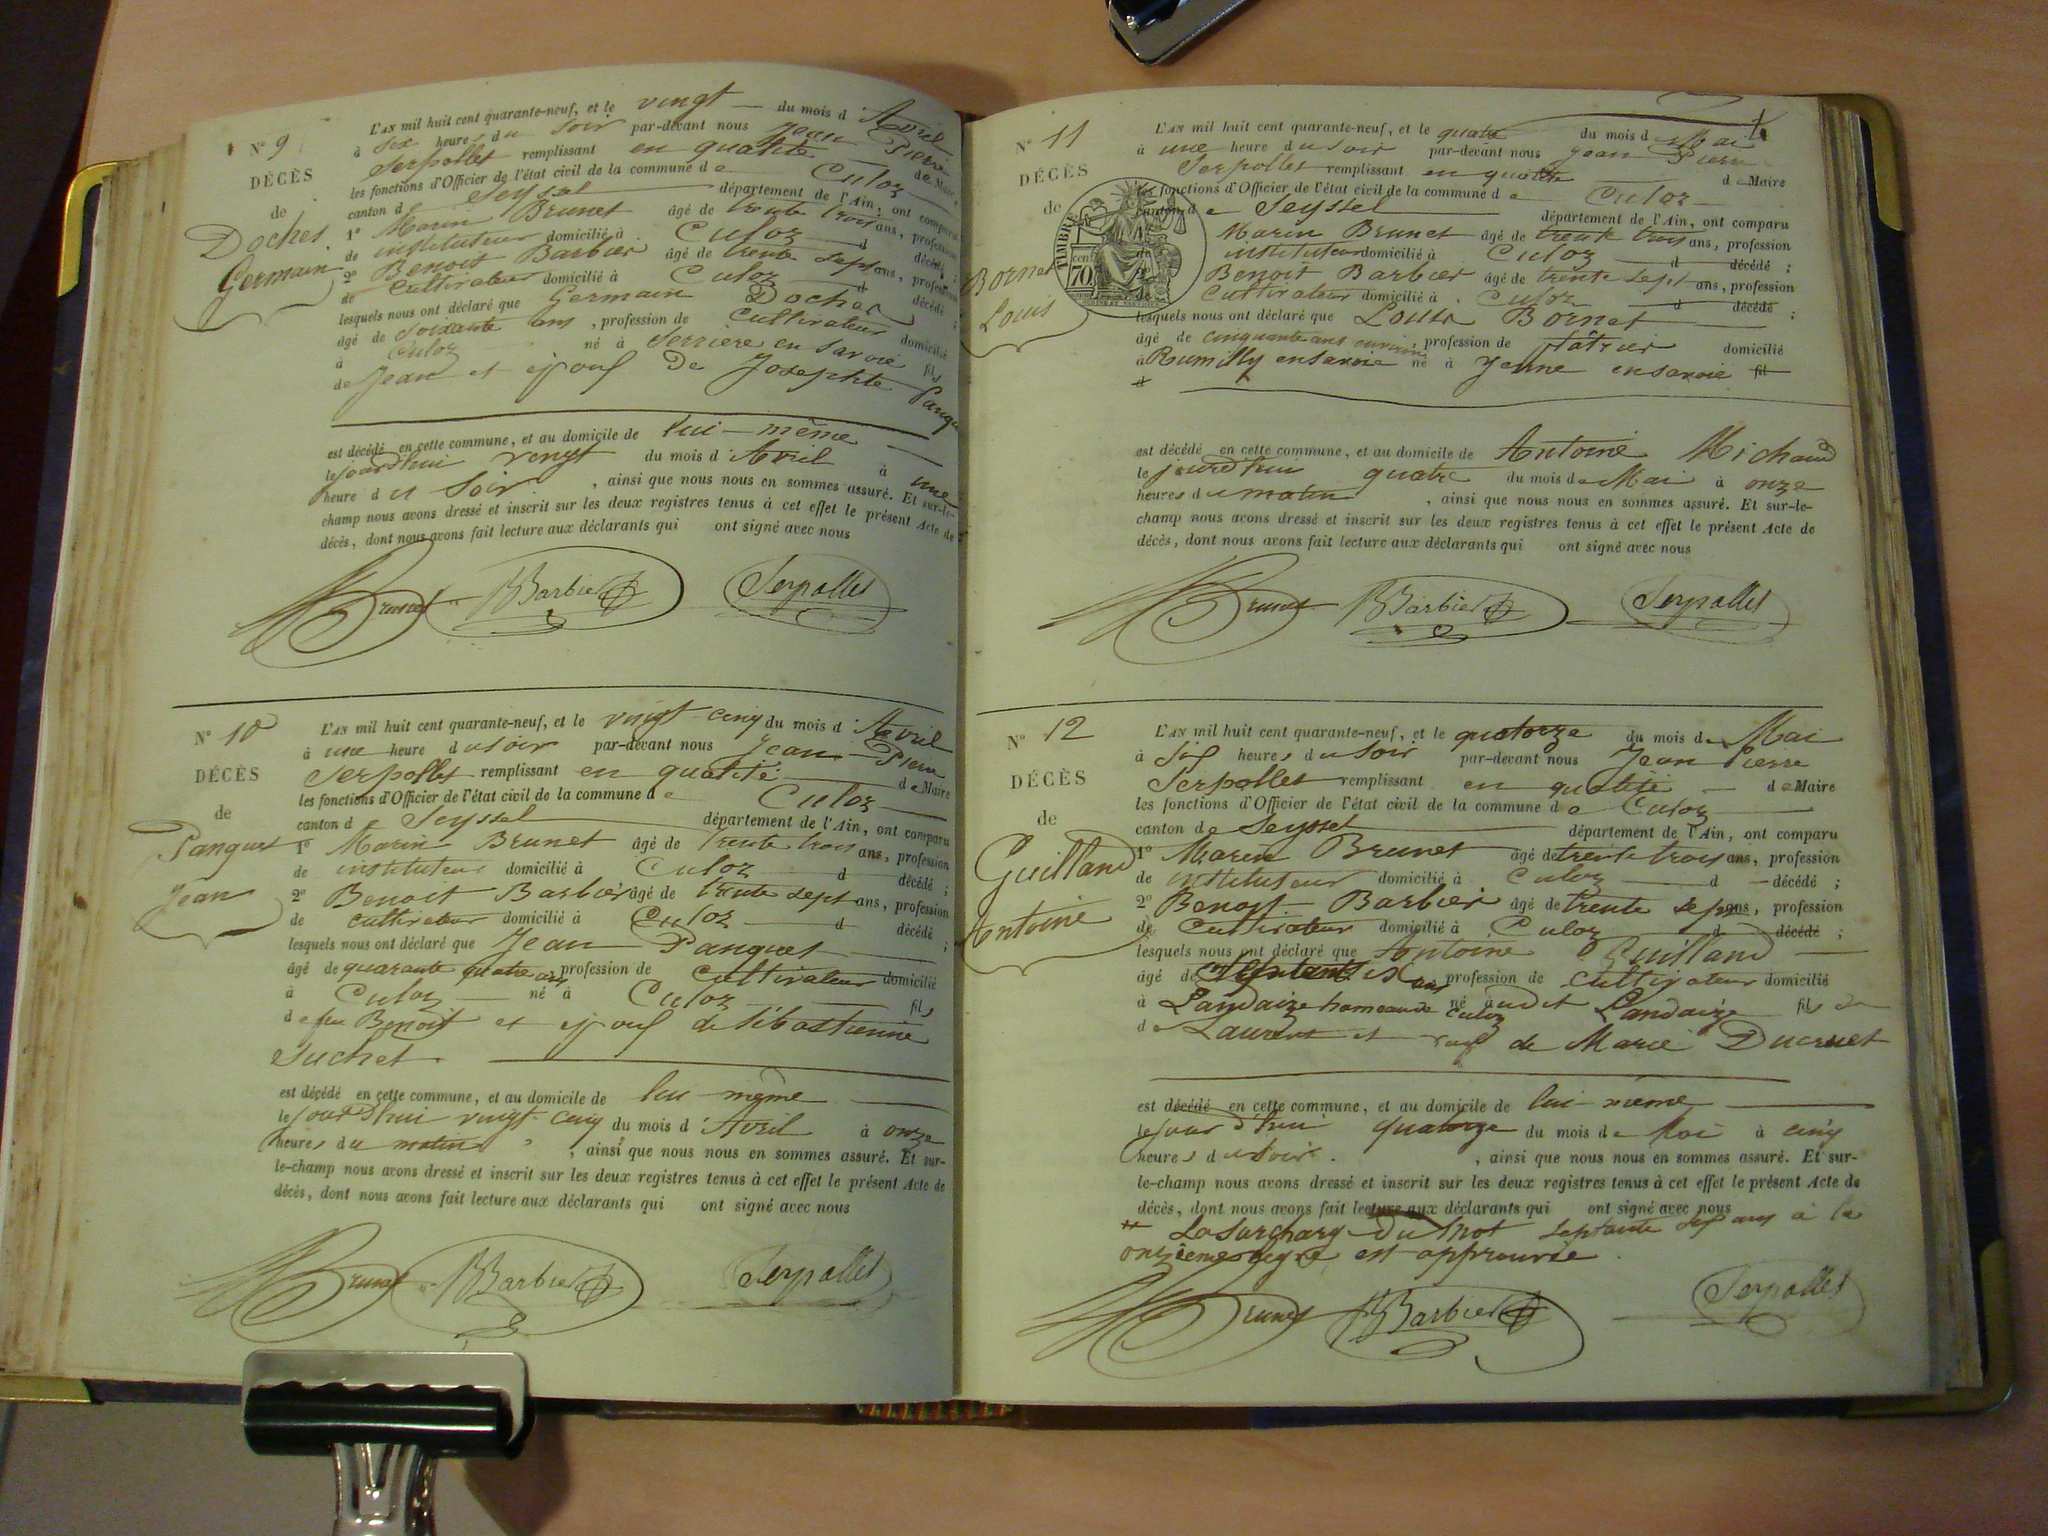 N° 9
DÉCÈS
de
Doches
Germain
L'AN mil huit cent quarante-neuf, et le vingt du mois d'Avril
à six heures du soir par-devant nous Jean Pierre
Serpollet remplissant en qualité de Maire
les fonctions d'Officier de l'état civil de la commune de Culoz
canton d Seyssel département de l'Ain, ont comparu
1° Marin Brunet âgé de trente trois ans, profession
de instituteur domicilié à Culoz d décédé ;
2° Benoit Barbier âgé de trente sept ans, profession
de cultivateur domicilié à Culoz d décédé ;
lesquels nous ont déclaré que Germain Doches
âgé de soixante ans, profession de cultivateur domicilié
à Culoz né à Serriere en savoie fils
de Jean et epous De Josephte Panqu
est décédé en cette commune, et au domicile de lui-même
le jourd'hui vingt du mois d'Avril à une
heure du soir, ainsi que nous nous en sommes assuré. Et sur-le-
champ nous avons dressé et inscrit sur les deux registres tenus à cet effet le présent Acte de
décès, dont nous avons fait lecture aux déclarants qui ont signé avec nous
Brunet BBarbier Serpollet
N° 10
DÉCÈS
de
Panquet
Jean
L'AN mil huit cent quarante-neuf, et le vingt-cinq du mois d'Avril
à une heure du soir par-devant nous Jean Pierre
Serpollet remplissant en qualité de Maire
les fonctions d'Officier de l'état civil de la commune de Culoz
canton d Seyssel département de l'Ain, ont comparu
1° Marin Brunet âgé de trente trois ans, profession
de instituteur domicilié à Culoz d décédé ;
2° Benoit Barbier âgé de trente sept ans, profession
de cultivateur domicilié à Culoz d décédé ;
lesquels nous ont déclaré que Jean Panquet
âgé de quarante quatre ans, profession de cultivateur domicilié
à Culoz né à Culoz fils
de feu Benoit et epous de Sébastienne
Suchet.
est décédé en cette commune, et au domicile de lui même
le jourd'hui vingt-cinq du mois d'Avril à onze
heures du matin, ainsi que nous nous en sommes assuré. Et sur-
le-champ nous avons dressé et inscrit sur les deux registres tenus à cet effet le présent Acte de
décès, dont nous avons fait lecture aux déclarants qui ont signé avec nous
Brunet BBarbier Serpollet
N° 11
DÉCÈS
de
Bornet
Louis
TIMBRE
70
L'AN mil huit cent quarante-neuf, et le quatre du mois d Mai
à une heure du soir par-devant nous Jean Pierre
Serpollet remplissant en qualité de Maire
les fonctions d'Officier de l'état civil de la commune de Culoz
canton de Seyssel département de l'Ain, ont comparu
Marin Brunet âgé de trente trois ans, profession
instituteur domicilié à Culoz d décédé ;
Benoit Barbier âgé de trente sept ans, profession
cultivateur domicilié à Culoz d décédé ;
lesquels nous ont déclaré que Louis Bornet
âgé de cinquante ans environ, profession de plâtrier domicilié
à Rumilly en savoie né à Yenne en savoie fil
d
est décédé en cette commune, et au domicile de Antoine Michaud
le jourd'hui quatre du mois de Mai à onze
heures du matin, ainsi que nous nous en sommes assuré. Et sur-le-
champ nous avons dressé et inscrit sur les deux registres tenus à cet effet le présent Acte de
décès, dont nous avons fait lecture aux déclarants qui ont signé avec nous
Brunet BBarbier Serpollet
N° 12
DÉCÈS
de
Guilland
Antoine
L'AN mil huit cent quarante-neuf, et le quatorze du mois de Mai
à six heures du soir par-devant nous Jean Pierre
Serpollet remplissant en qualité de Maire
les fonctions d'Officier de l'état civil de la commune de Culoz
canton de Seyssel département de l'Ain, ont comparu
1° Marin Brunet âgé de trente trois ans, profession
de instituteur domicilié à Culoz d décédé ;
2° Benoit Barbier âgé de trente sept ans, profession
de cultivateur domicilié à Culoz d décédé ;
lesquels nous ont déclaré que Antoine Guilland
âgé de septante six ans, profession de cultivateur domicilié
à Landaize hameau de Culoz né à udit Landaize fils de
de Laurent et de Marie Ducruet
est décédé en cette commune, et au domicile de lui-même
le jourd'hui quatorze du mois de Mai à cinq
heures du soir, ainsi que nous nous en sommes assuré. Et sur-
le-champ nous avons dressé et inscrit sur les deux registres tenus à cet effet le présent Acte de
décès, dont nous avons fait lecture aux déclarants qui ont signé avec nous
La surcharg du mot septante six ans à la
onzieme ligne est approuvée
Brunet BBarbier Serpollet